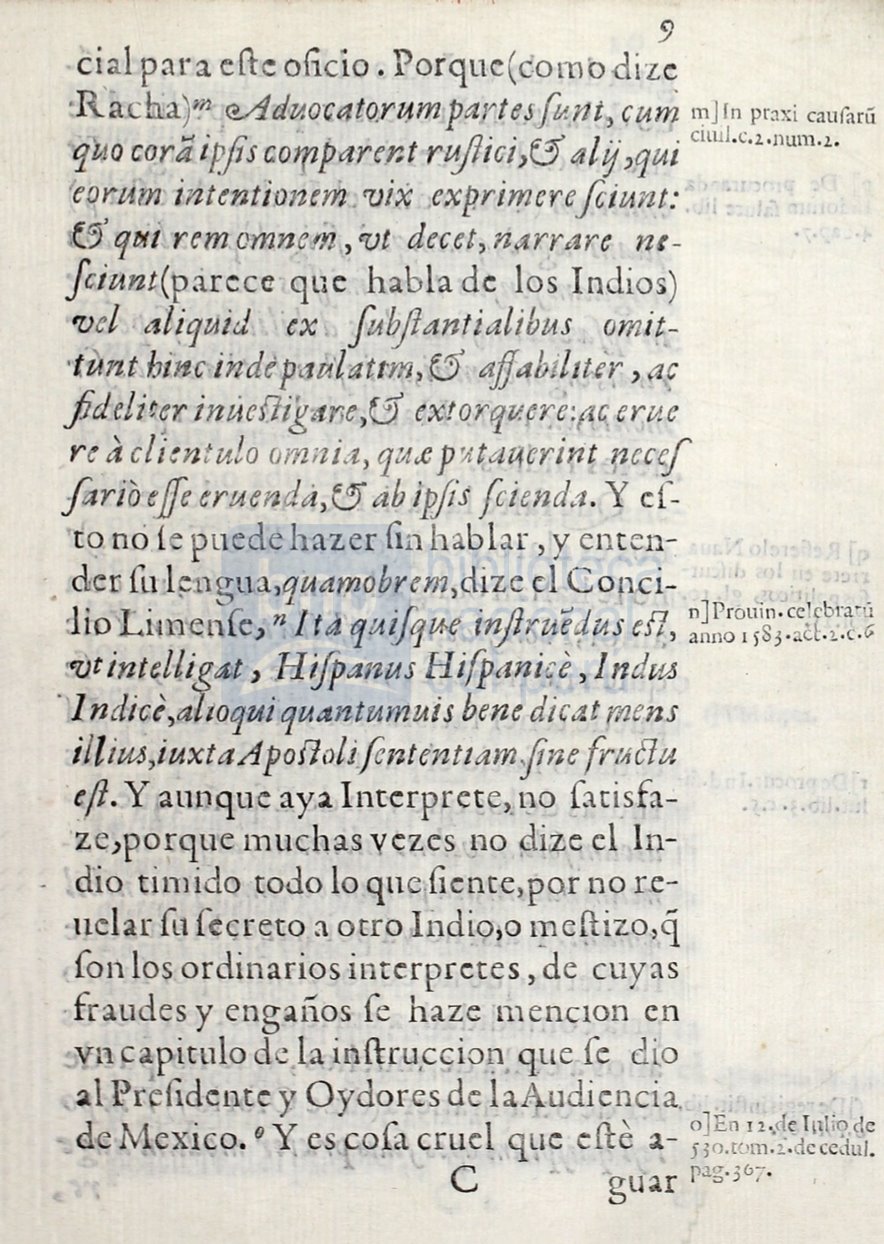 9
cial para eſte oficio. Porque (como dize
Racha) m Aduocatorum partes ſunt, cum
quo corã ipſis comparent ruſtici, & alij, qui
eorum intentionem vix exprimere ſciunt:
& qui rem omnem, vt decet, narrare ne-
ſciunt (parece que habla de los Indios)
vel aliquid ex ſubſtantialibus omit-
tunt hinc inde paulatim, & affabiliter, ac
fideliter inueſtigare, & extorquere: ac erue
re à clientulo omnia, quæ putauerint neceſ
ſariò eſſe eruenda, & ab ipſis ſcienda. Y eſ-
to no ſe puede hazer ſin hablar, y enten-
der ſu lengua, quamobrem, dize el Conci-
lio Limenſe, n Ita quiſque inſtruẽdus eſt,
vt intelligat, Hiſpanus Hiſpanicè, Indus
Indicè, alioqui quantumuis bene dicat mens
illius, iuxta Apoſtoli ſententiam ſine fructu
eſt. Y aunque aya Interprete, no ſatisfa-
ze, porque muchas vezes no dize el In-
dio timido todo lo que ſiente, por no re-
uelar ſu ſecreto a otro Indio, o meſtizo, q̃
ſon los ordinarios interpretes, de cuyas
fraudes y engaños ſe haze mencion en
vn capitulo de la inſtruccion que ſe dio
al Preſidente y Oydores de la Audiencia
de Mexico. o Y es coſa cruel que eſtè a-
C guar
m] In praxi cauſarũ
ciuil. c. 2. num. 2.
n] Prouin. celebratũ
anno 1583. act. 2. c. 6
o] En 12. de Iulio de
530. tom. 2. de cedul.
pag. 367.